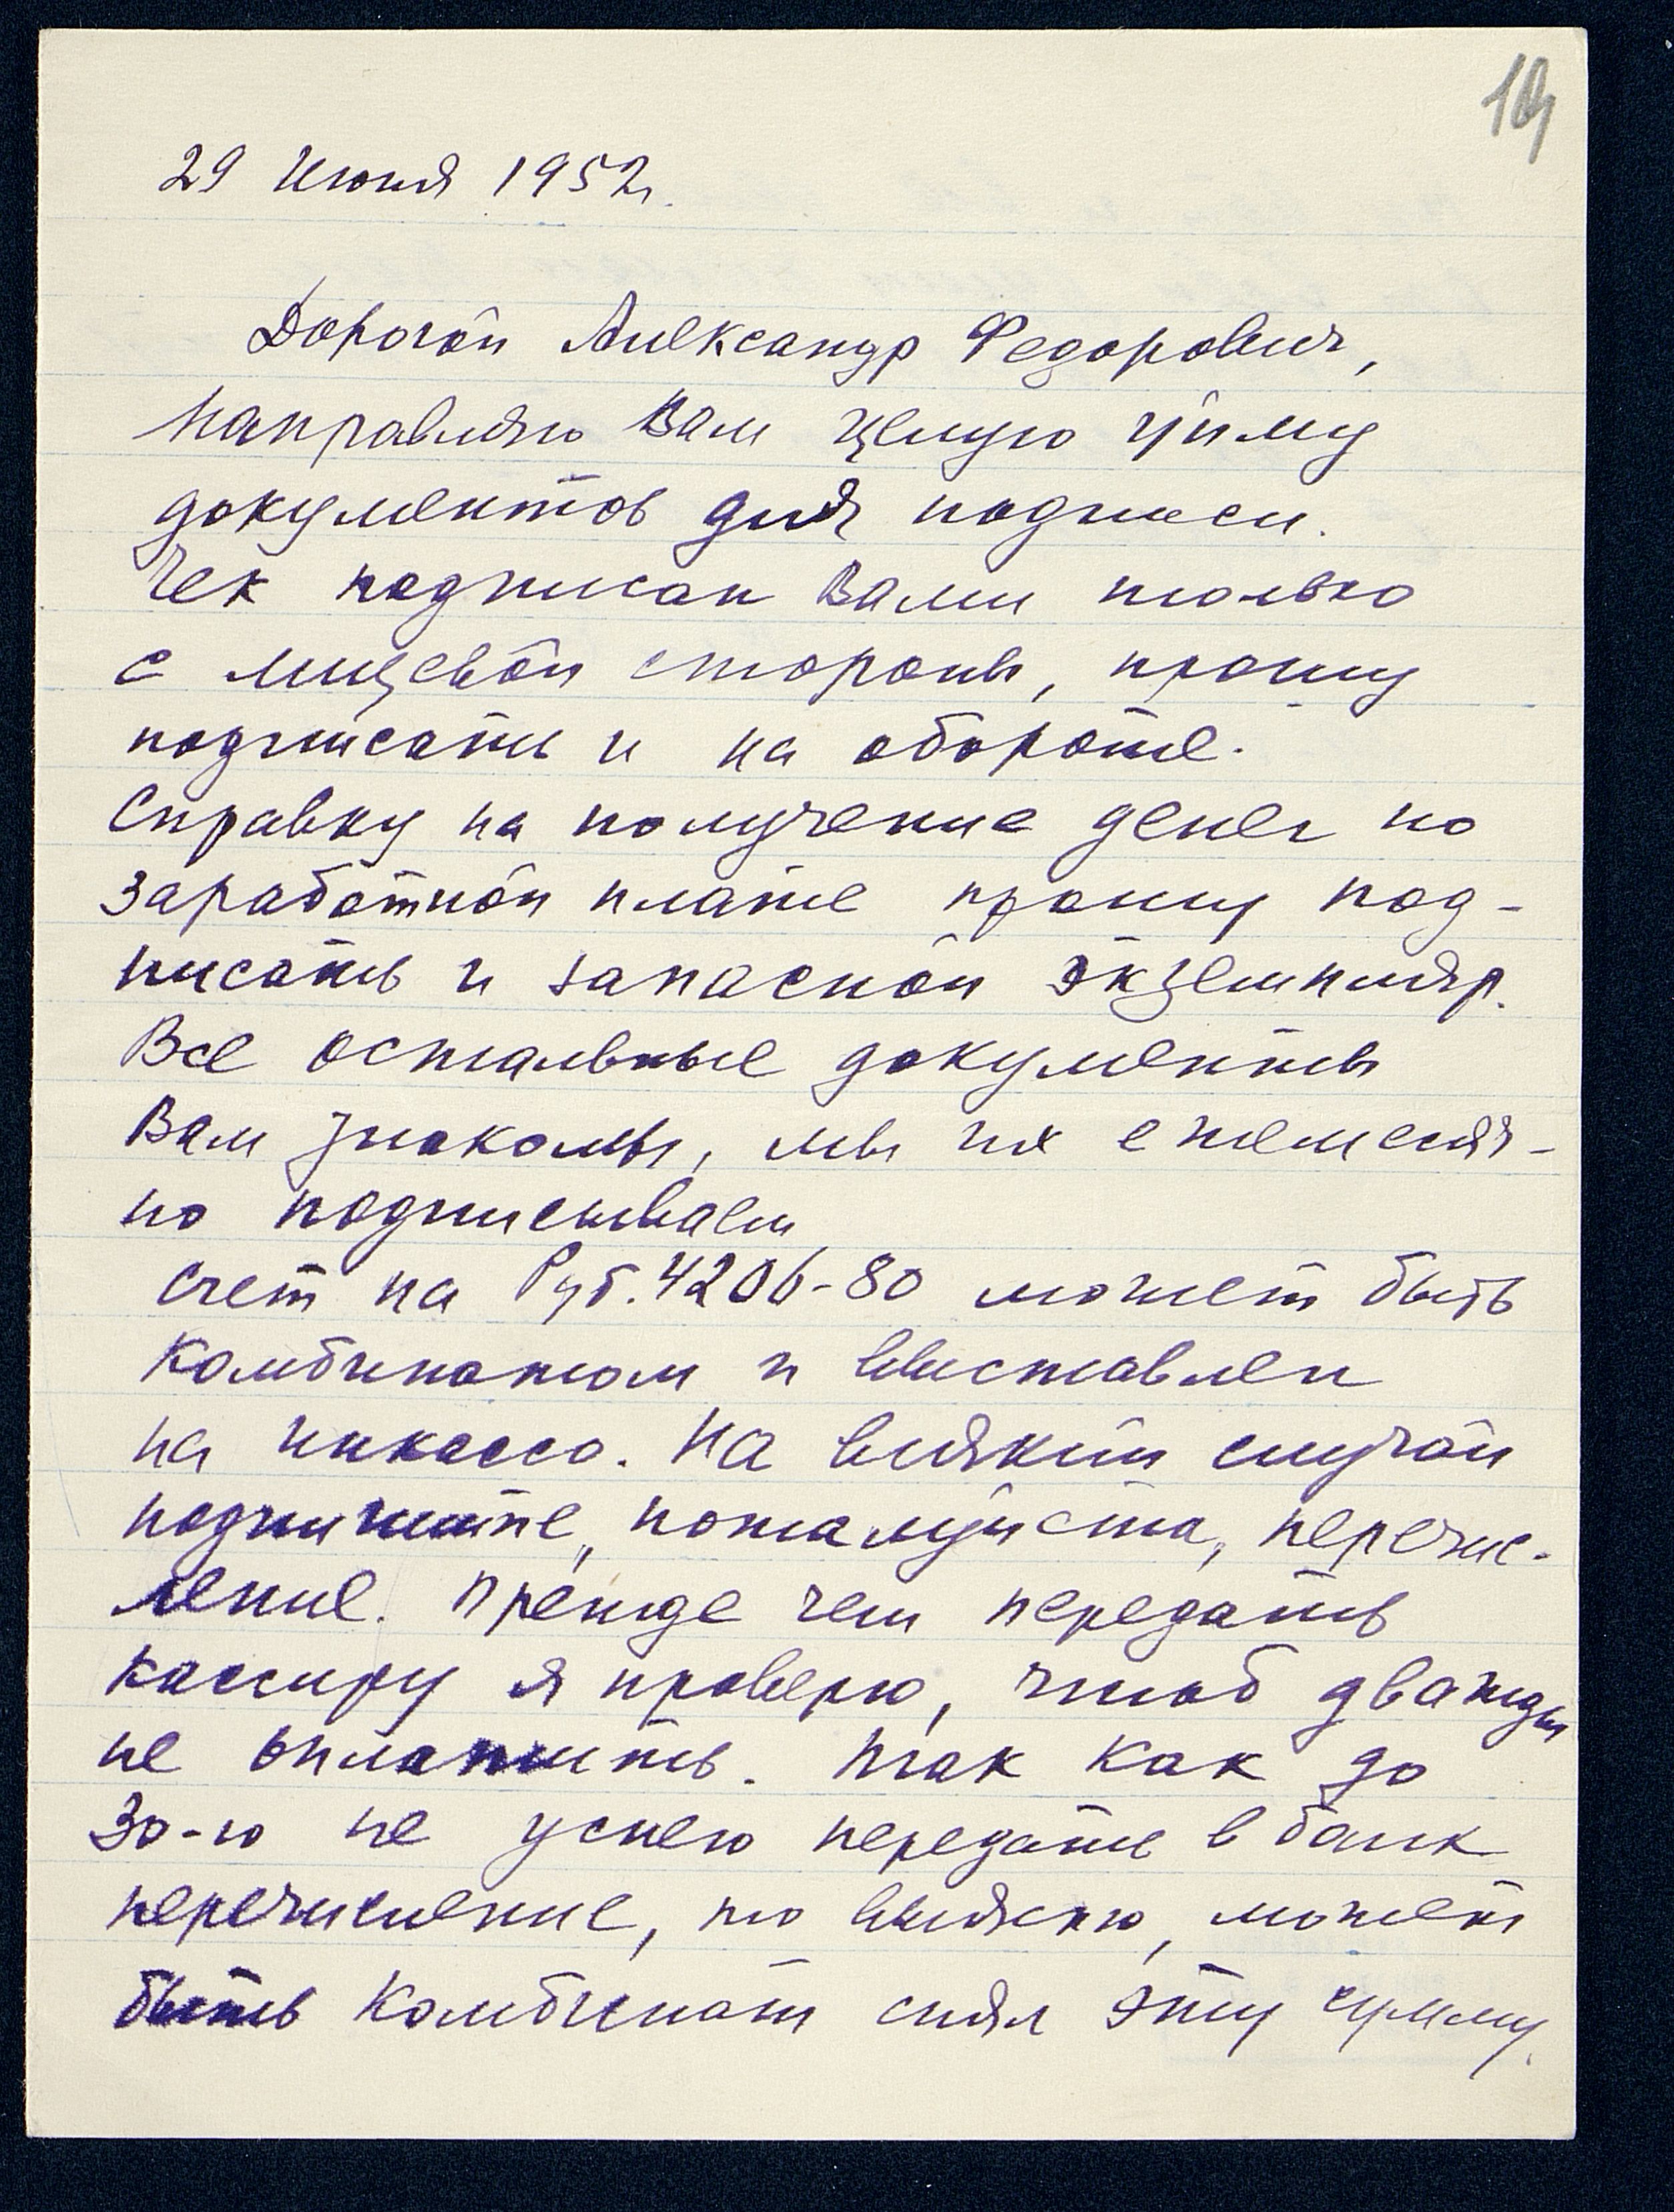 29 Июня 1952г.
Дорогой Александр Федорович,
Направляю Вам целую уйму
документов для подписи.
Чек подписан Вами только
с лицевой стороны, прошу
подписать и на обороте.
Справку на получение денег по
заработной плате прошу под-
писать и запасной экземпляр.
Все остальные документы
Вам знакомы, мы их ежемесяч-
но подписываем
Счет на Руб. 4206-80 может быть
Комбинатом и выставлен
на инкассо. На всякий случай
подпишите, пожалуйста, перечис-
ление. Прежде чем передать
кассиру я проверю, чтоб дважды
не оплатить. Так как до
30-го не успею передать в банк
перечисление, то выясню, может
быть Комбинат снял эту сумму.